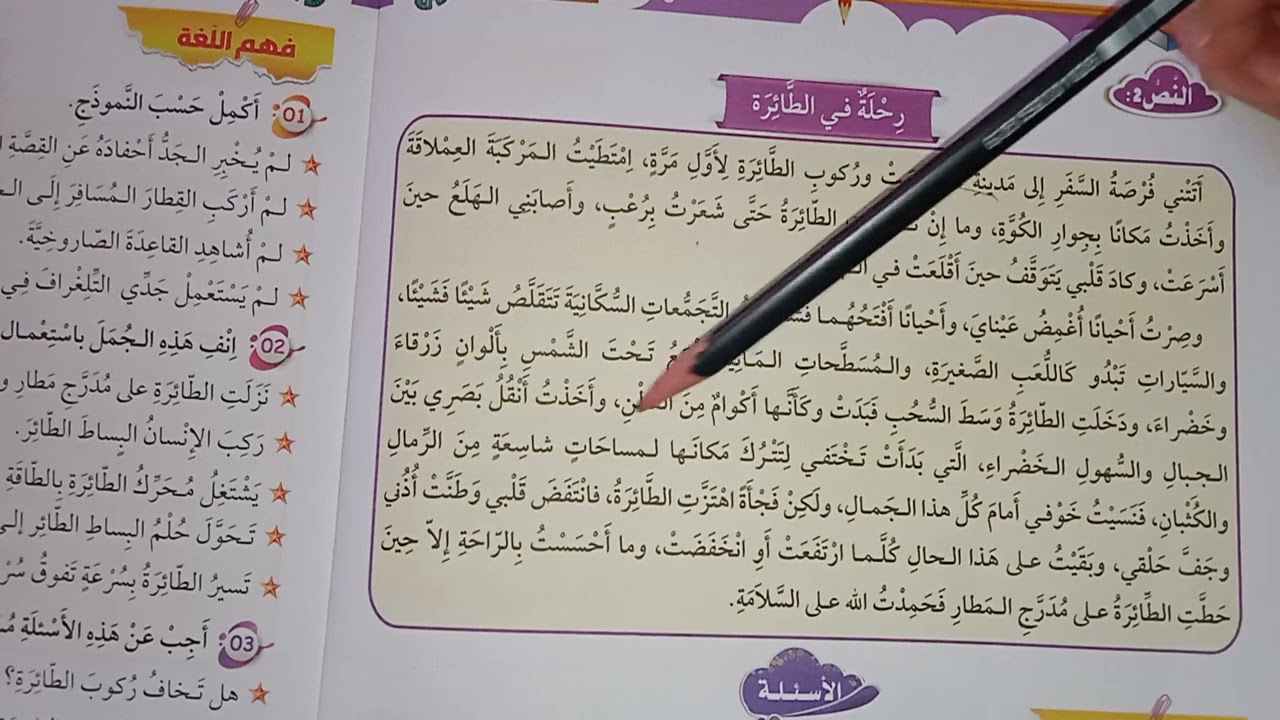 النص 2:
رِحْلَةٌ في الطَّائِرَة
أَتَتْني فُرْصَةُ السَّفَرِ إِلى مَدينَةِ ورُكوبِ الطَّائِرَةِ لِأَوَّلِ مَرَّةٍ، اِمْتَطَيْتُ الـمَرْكَبَةَ العِمْلاقَةَ
وأَخَذْتُ مَكانًا بِجِوارِ الكُوَّةِ، وما إِنْ الطّائِرَةُ حَتَّى شَعَرْتُ بِرُعْبٍ، وأَصابَنِي الـهَلَعُ حينَ
أَسْرَعَتْ، وكادَ قَلْبي يَتَوَقَّفُ حينَ أَقْلَعَتْ في
وصِرْتُ أَحْيانًا أُغْمِضُ عَيْنايَ، وَأَحْيانًا أَفْتَحُهُـما التَّجَمُّعاتِ السُّكَّانِيَةَ تَتَقَلَّصُ شَيْئًا فَشَيْئًا،
والسَّيّاراتِ تَبْدُو كَاللُّعَبِ الصَّغيرَةِ، والـمُسَطَّحاتِ تَـحْتَ الشَّمْسِ بِأَلْوانٍ زَرْقاءَ
وخَضْراءَ، ودَخَلَتِ الطّائِرَةُ وَسَطَ السُّحُبِ فَبَدَتْ وكَأَنَّـها أَكْوامٌ مِنَ ، وأَخَذْتُ أَنْقُلُ بَصَرِي بَيْنَ
الـجبالِ والسُّهولِ الـخَضْراءِ، الَّتي بَدَأَتْ تَـخْتَفي لِتَتْرُكَ مَكانَـها لـمساحَاتٍ شاسِعَةٍ مِنَ الرِّمالِ
والكُثْبانِ، فَنَسَيْتُ خَوْفي أَمامَ كُلِّ هذا الـجَمالِ، ولَكِنْ فَجْأَةً اهْتَزَّتِ الطَّائِرَةُ، فانْتَفَضَ قَلْبي وَطَنَّتْ أُذُني
وجَفَّ حَلْقي، وبَقَيْتُ علـى هَذا الـحالِ كُلَّـمـا ارْتَفَعَتْ أَوِ انْخَفَضَتْ، وما أَحْسَسْتُ بِالرّاحَةِ إِلاّ حِينَ
حَطَّتِ الطّائِرَةُ علـى مُدَرَّجِ الـمَطارِ فَحَمِدْتُ الله علـى السَّلامَةِ.
الأسئلة
فهم اللّغة
01: أَكْمِلْ حَسْبَ النَّموذَجِ.
لـمْ يُـخْبِرِ الـجَدُّ أَحْفادَهُ عَنِ القِصَّةِ
لـمْ أَرْكَبِ القِطارَ الـمُسَافِرَ إِلَـى
لـمْ أُشاهِدِ القاعِدَةَ الصّاروخِيَّةَ.
لـمْ يَسْتَعْمِلْ جَدِّي التِّلِغْرافَ فِي
02: اِنْفِ هَذِهِ الـجُمَلَ باسْتِعْمالِ
نَزَلَتِ الطّائِرَةِ على مُدَرَّجِ مَطارِ
رَكِبَ الإِنْسانُ البِساطَ الطّائِرَ.
يَشْتَغِلُ مُـحَرِّكُ الطّائِرَةِ بِالطّاقَةِ
تَـحَوَّلَ حُلْمُ البِساطِ الطّائِرِ إلى
تَسيرُ الطّائِرَةُ بِسُرْعَةٍ تَفوقُ
03: أَجِبْ عَنْ هَذِهِ الأَسْئِلَةِ
هل تَـخافُ رُكوبَ الطّائِرَةِ؟